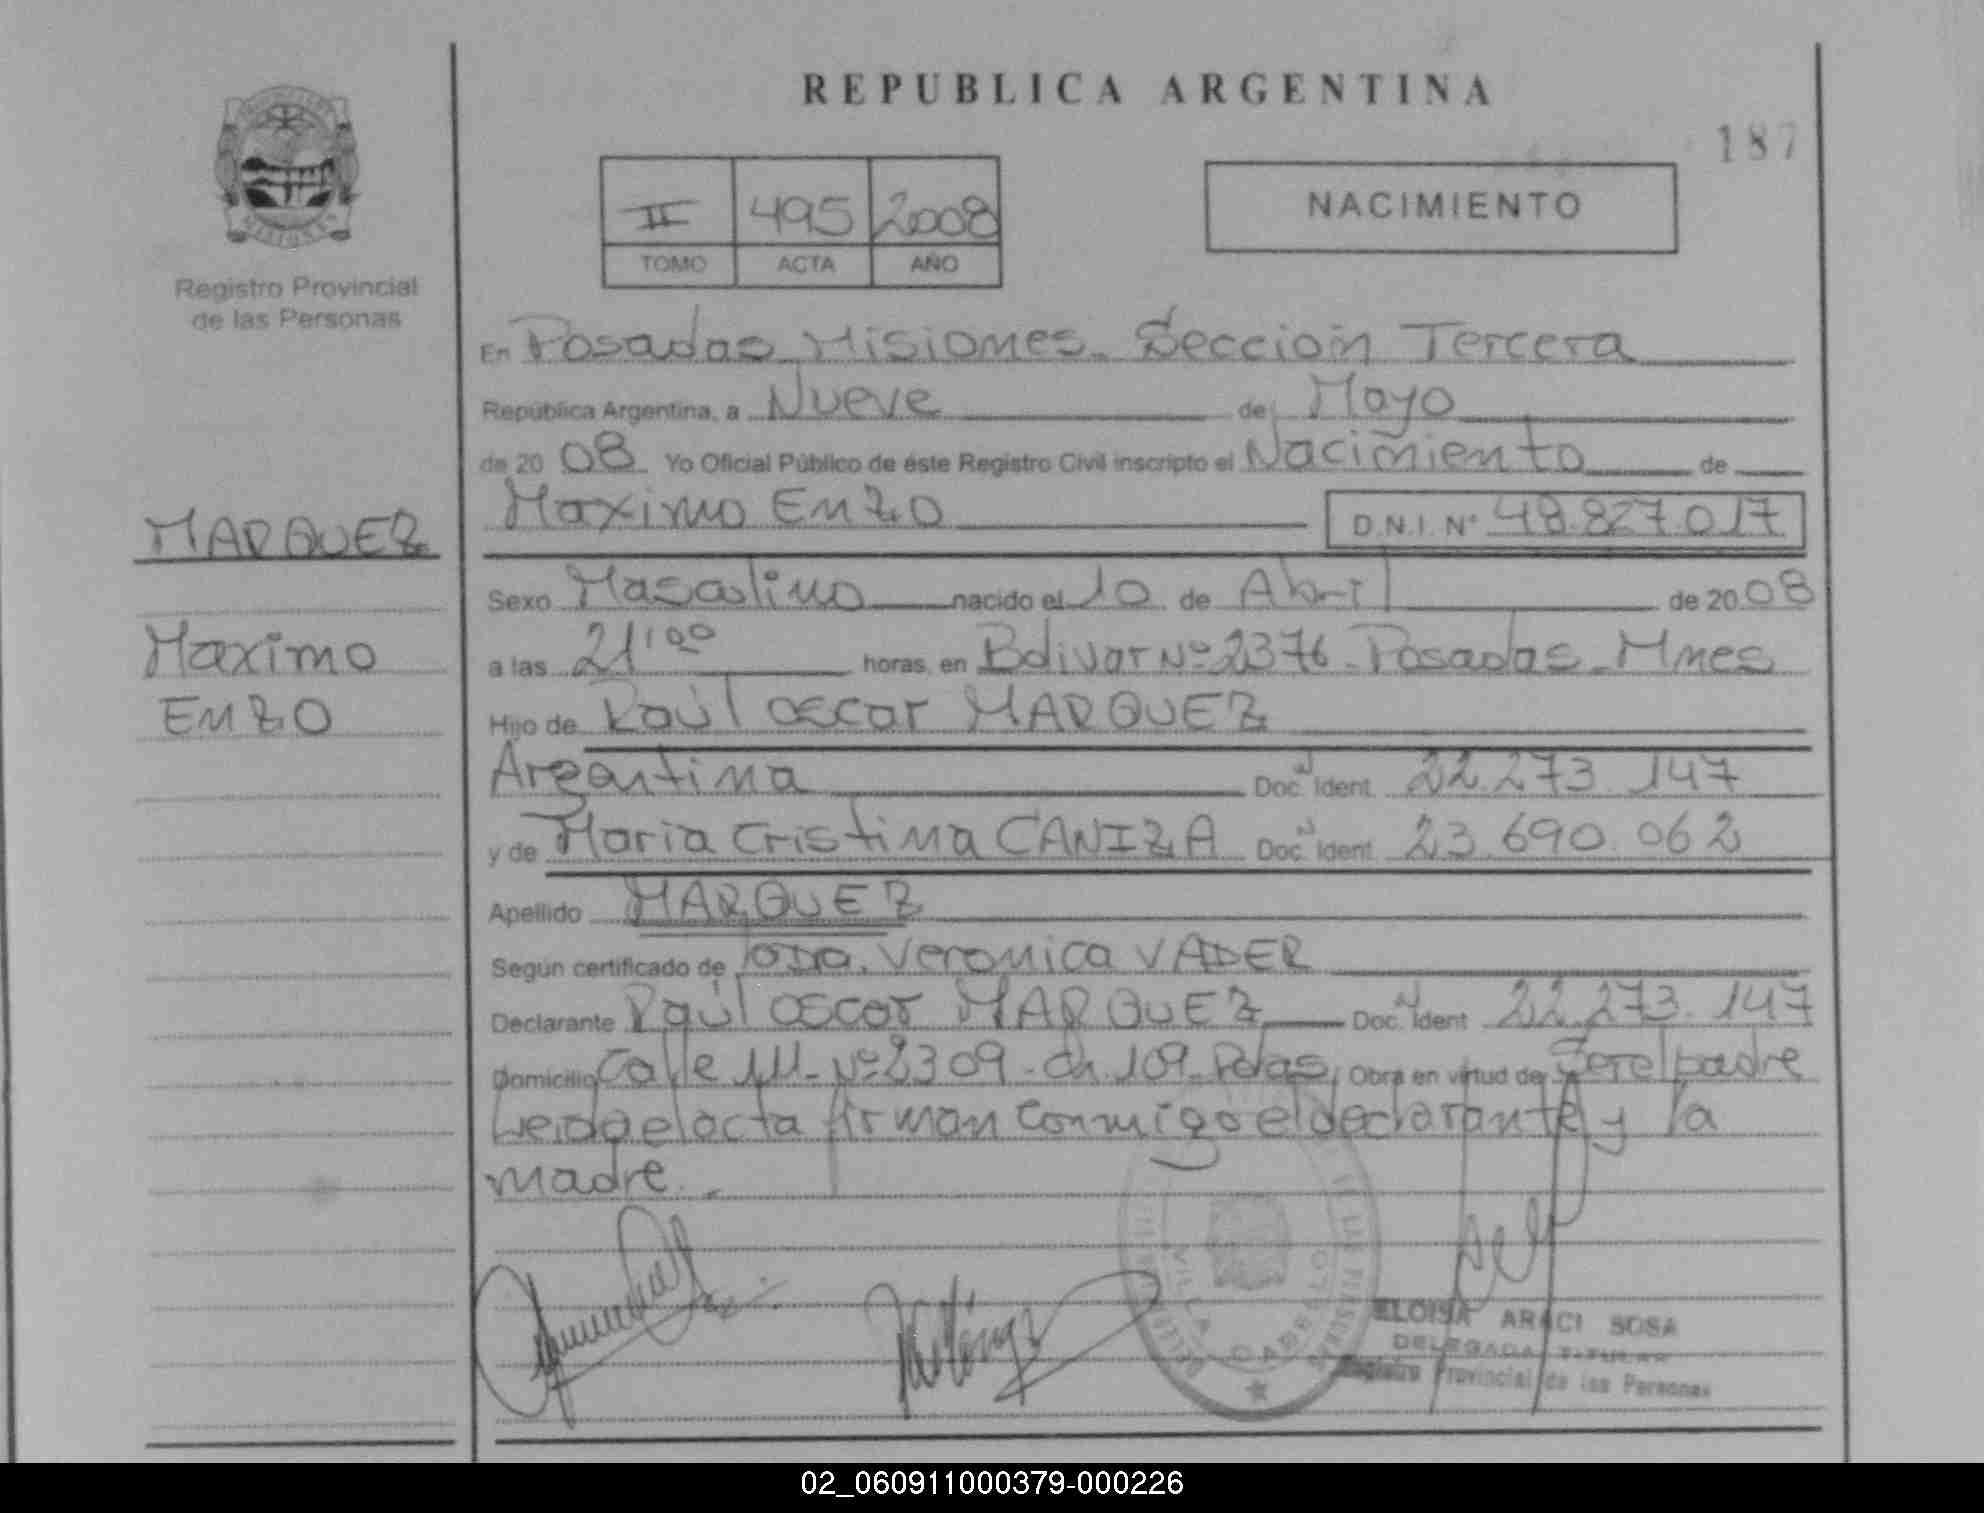 REPUBLICA ARGENTINA
187
II 495 2008
TOMO ACTA AÑO
NACIMIENTO
Registro Provincial
de las Personas
En Posadas Misiones. Sección Tercera
República Argentina, a Nueve de Mayo
de 2008 Yo Oficial Público de éste Registro Civil inscripto el Nacimiento de
Maximo Enzo D.N.I. N° 48.827.017
MARQUEZ
Maximo
Enzo
Sexo Masculino nacido el 10 de Abril de 2008
a las 21'00 horas, en Bolivar Nº 2376 - Posadas - Mnes
Hijo de Raúl Oscar MARQUEZ
Argentina Doc. Ident. 22.273.147
y de Maria Cristina CANIZA Doc. Ident. 23.690.062
Apellido MARQUEZ
Según certificado de Veronica VADER
Declarante Raúl Oscar MARQUEZ Doc. Ident 22.273.147
Domicilio Calle Nº 2309 - Ch 109 - Pdas, Obra en virtud de Ser el padre
Leida el acta firman conmigo el declarante y la
madre.
VILLA CABELLO
ELOISA ARACI SOSA
DELEGADA TITULAR
Registro Provincial de las Personas
02_060911000379-000226